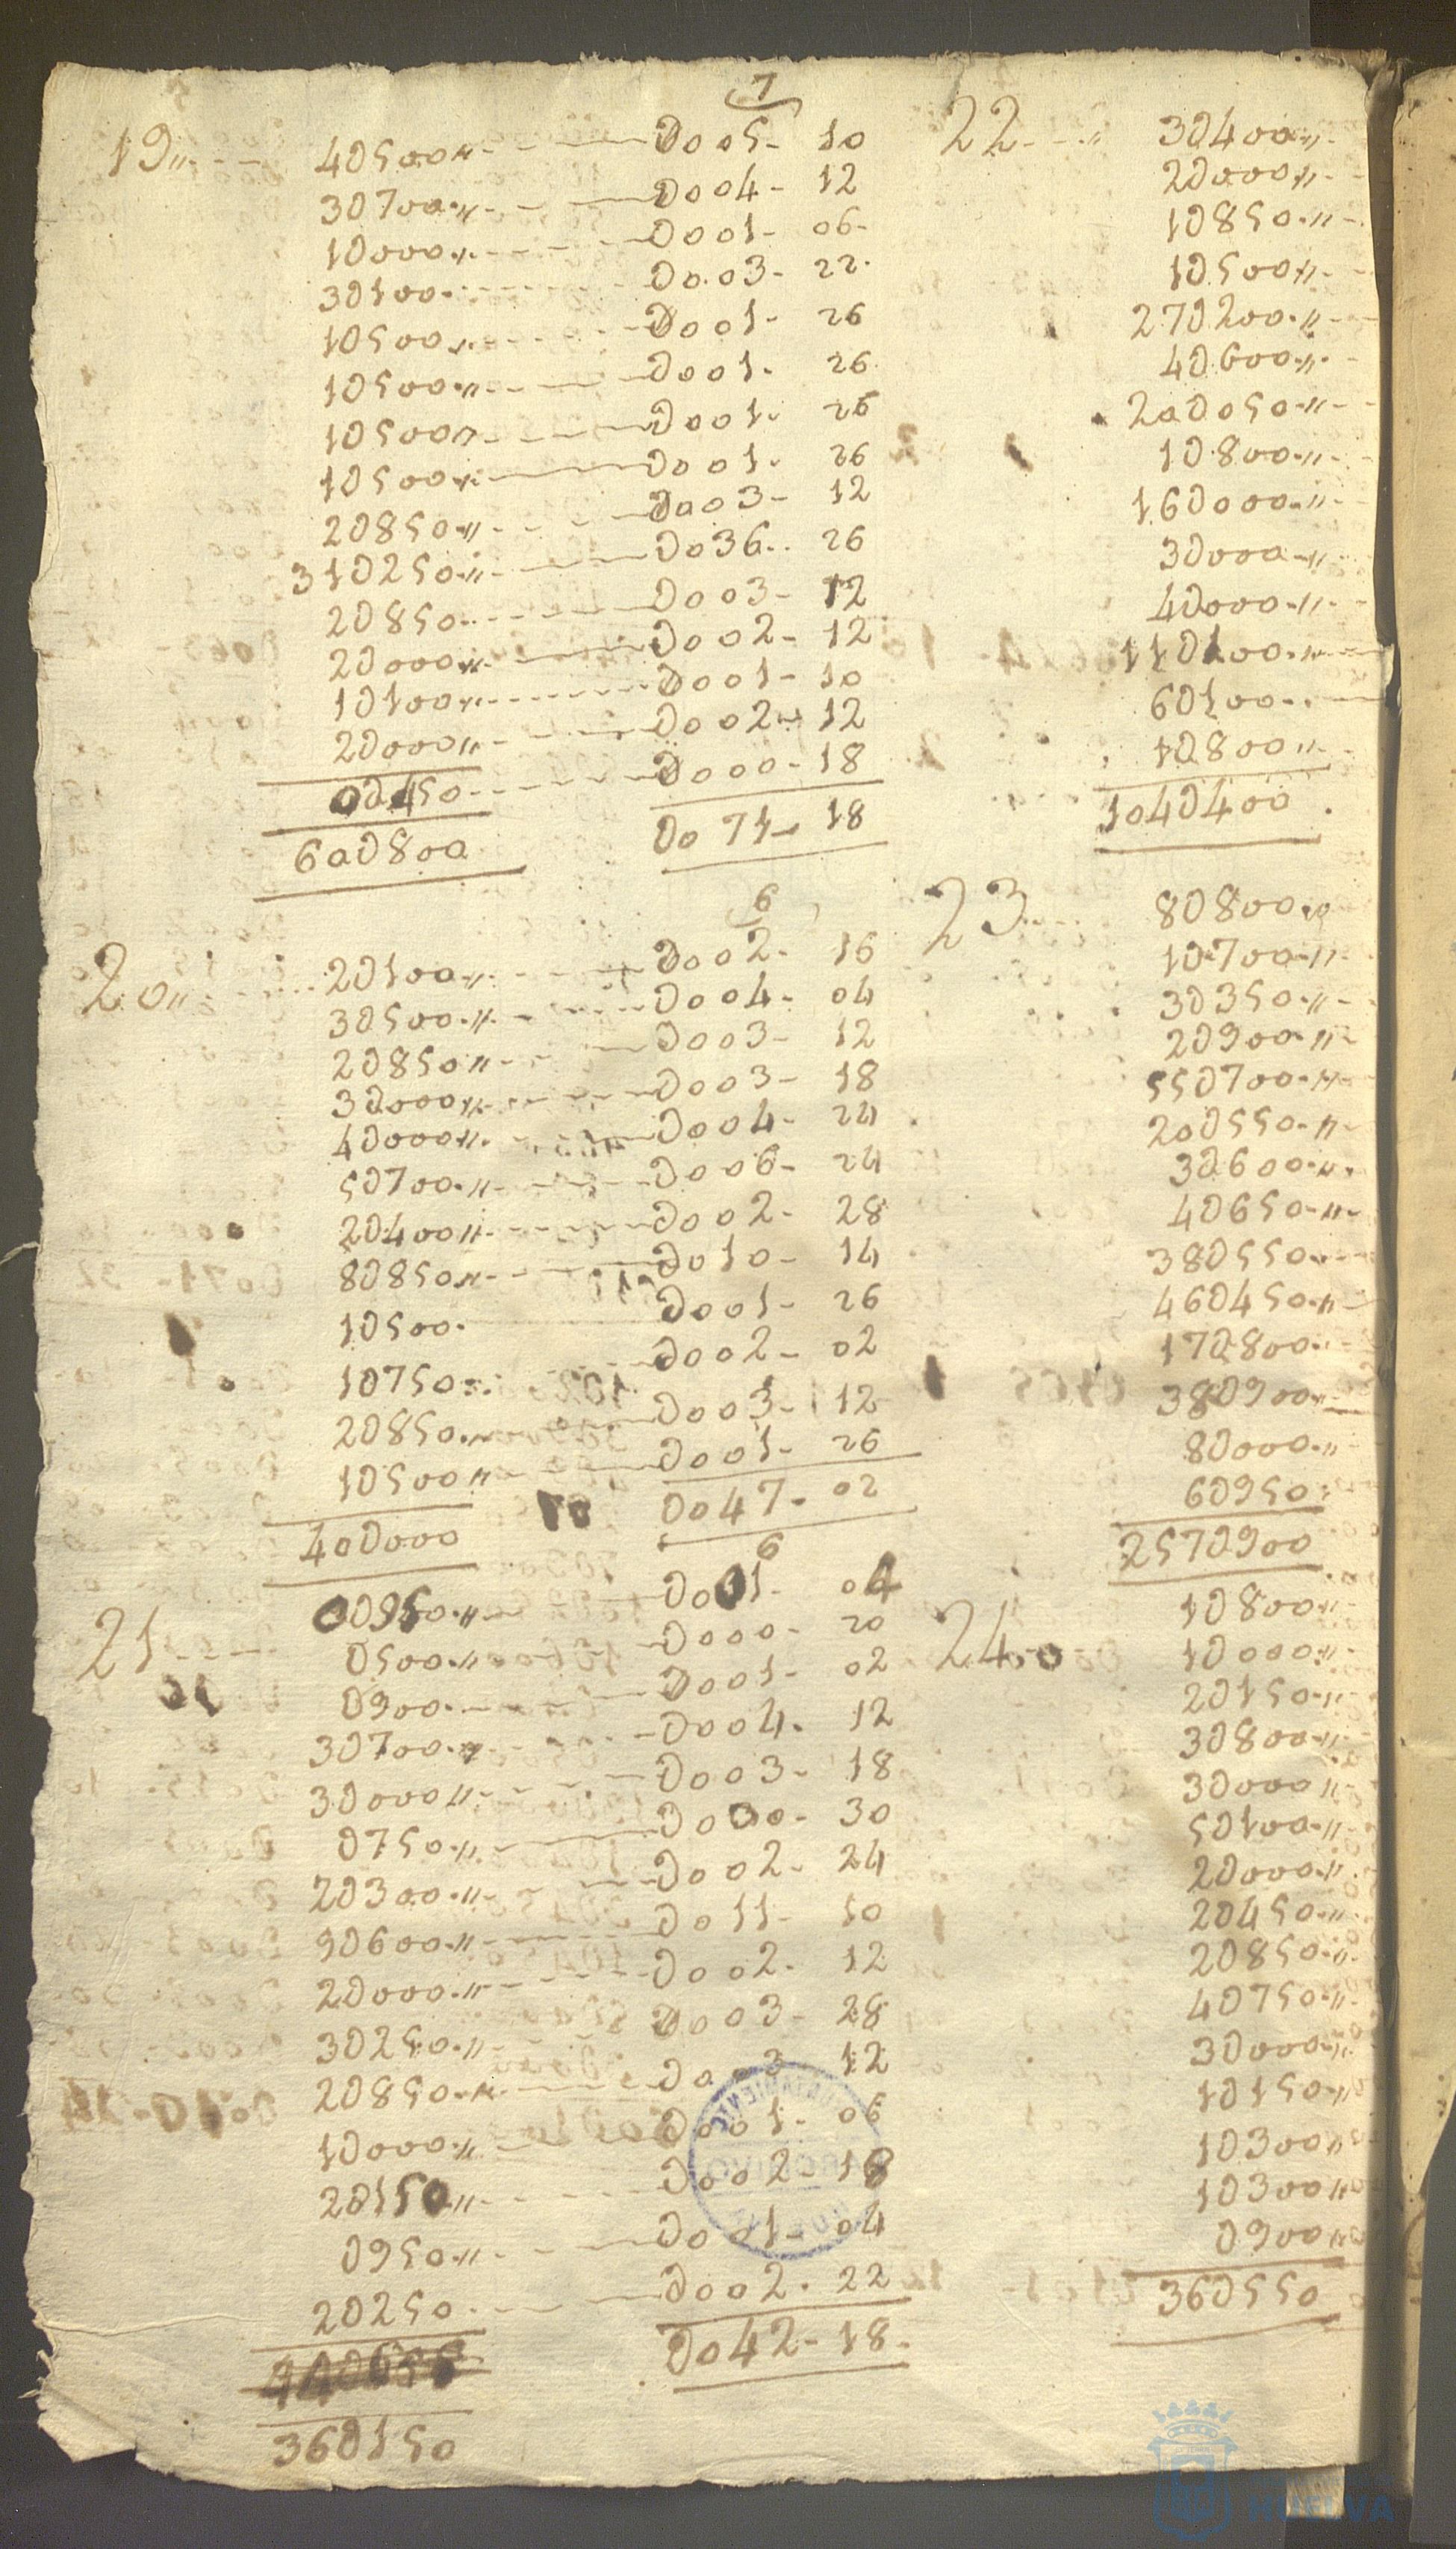 7
19 4D500 D005 10
3D700 D004 12
1D000 D001 06
3D100 D003 22
1D500 D001 26
1D500 D001 26
1D500 D001 26
1D500 D001 26
2D850 D003 12
31D250 D036 26
2D850 D003 12
2D000 D002 12
1D100 D001 10
2D000 D002 12
0D450 D000 18
60D800 D071 18
6
20 2D100 D002 16
3D500 D004 04
2D850 D003 12
3D000 D003 18
4D000 D004 24
5D700 D006 24
2D400 D002 28
8D850 D010 14
1D500 D001 26
1D750 D002 02
2D850 D003 12
1D500 D001 26
40D000 D047 02
6
21 0D950 D001 04
D500 D000 20
D900 D001 02
3D700 D004 12
3D000 D003 18
D750 D000 30
2D300 D002 24
9D600 D011 10
2D000 D002 12
3D250 D003 28
2D850 D003 12
1D000 D001 06
2D150 D002 18
D950 D001 04
2D250 D002 22
D042 18
36D150
22 3D400
2D000
1D850
1D500
27D200
4D600
20D050
1D800
16D000
3D000
4D000
11D100
6D100
1D800
104D400
23 8D800
1D700
3D350
2D900
55D700
20D550
3D600
4D650
38D550
46D450
17D800
38D900
8D000
6D950
257D900
24 1D800
1D000
2D150
3D800
3D000
5D100
2D000
2D450
2D850
4D750
3D000
1D150
1D300
1D300
D900
36D550
HUELVA